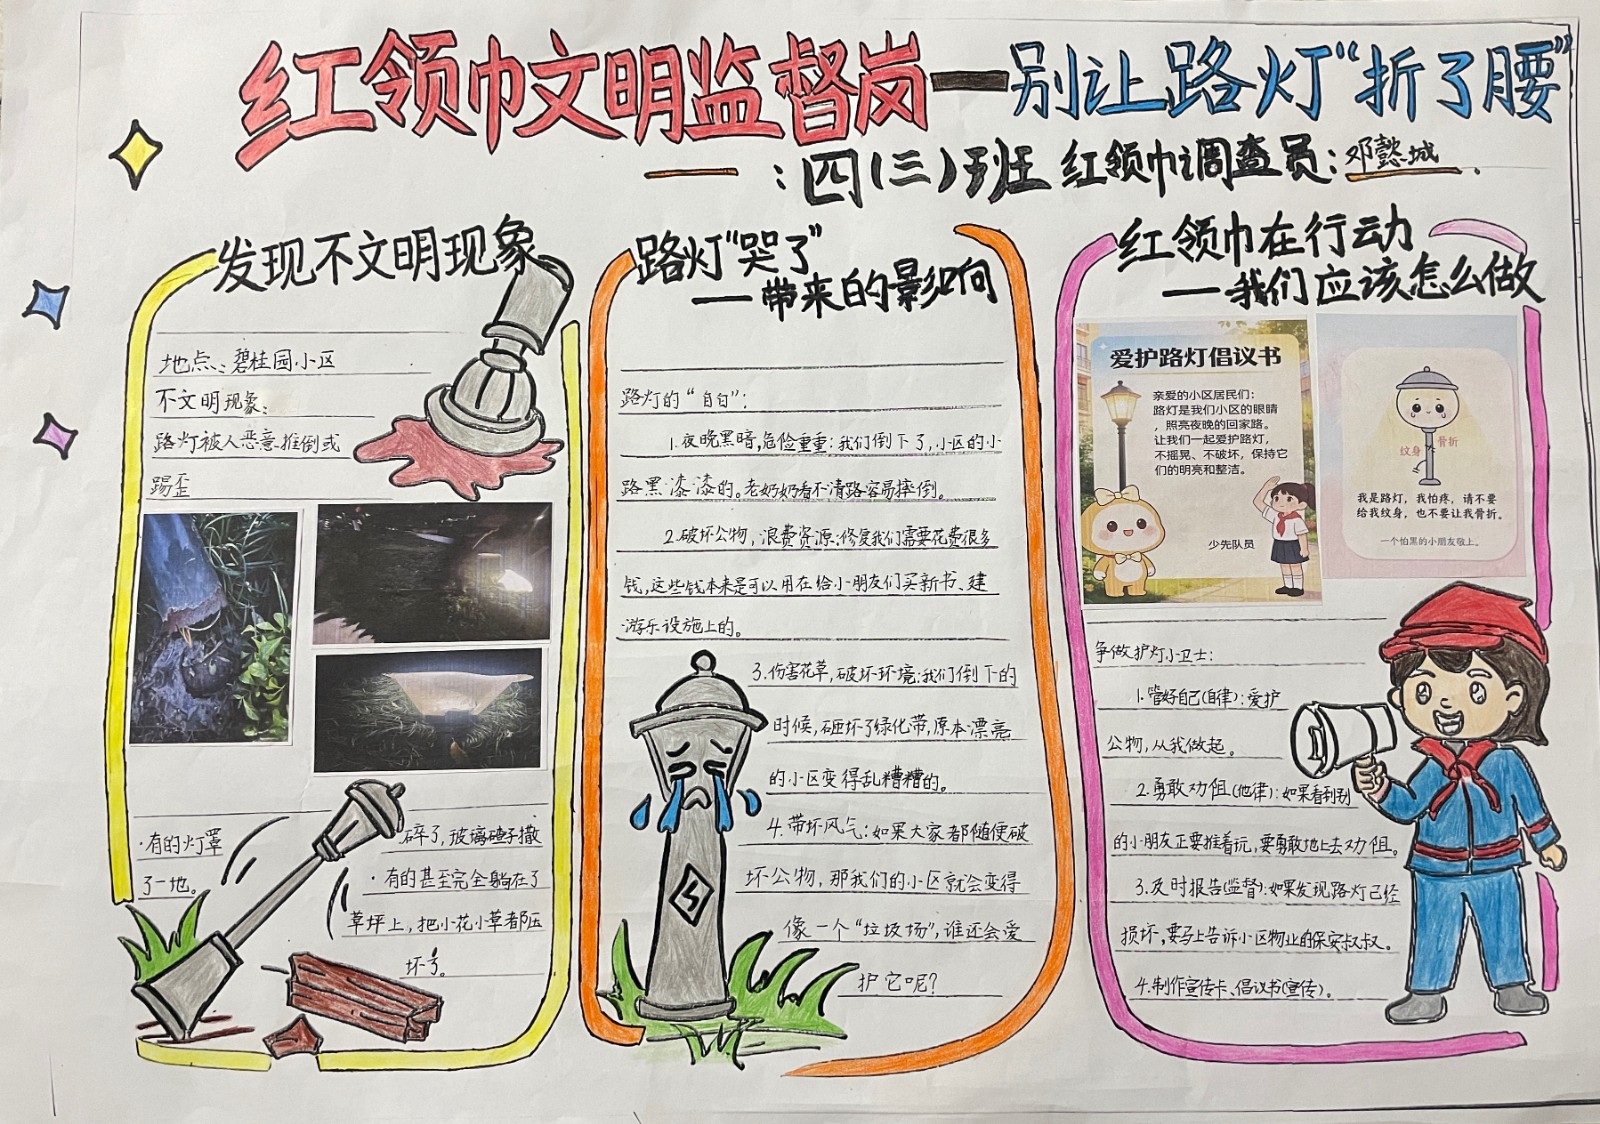 红领巾文明监督岗—别让路灯“折了腰”
——：四(三)班 红领巾调查员：邓懿城.
发现不文明现象
地点：碧桂园小区
不文明现象：
路灯被人恶意推倒或
踢歪
·有的灯罩碎了，玻璃碴子撒
了一地。
·有的甚至完全躺在了
草坪上，把小花小草都压
坏了。
路灯“哭了”
——带来的影响
路灯的“自白”：
1.夜晚黑暗,危险重重:我们倒下了,小区的小
路黑漆漆的。老奶奶看不清路容易摔倒。
2.破坏公物，浪费资源:修复我们需要花费很多
钱,这些钱本来是可以用在给小朋友们买新书、建
游乐设施上的。
3.伤害花草,破坏环境:我们倒下的
时候,砸坏了绿化带,原本漂亮
的小区变得乱糟糟的。
4.带坏风气：如果大家都随便破
坏公物，那我们的小区就会变得
像一个“垃圾场”,谁还会爱
护它呢?
红领巾在行动
——我们应该怎么做
爱护路灯倡议书
亲爱的小区居民们：
路灯是我们小区的眼睛
，照亮夜晚的回家路。
让我们一起爱护路灯，
不摇晃、不破坏，保持它
们的明亮和整洁。
少先队员
纹身
骨折
我是路灯，我怕疼，请不要
给我纹身，也不要让我骨折。
一个怕黑的小朋友敬上。
争做护灯小卫士：
1.管好自己(自律)：爱护
公物，从我做起。
2.勇敢劝阻(他律)：如果看到别
的小朋友正要推着玩，要勇敢地上去劝阻。
3.及时报告(监督):如果发现路灯已经
损坏，要马上告诉小区物业的保安叔叔。
4.制作宣传卡、倡议书(宣传)。